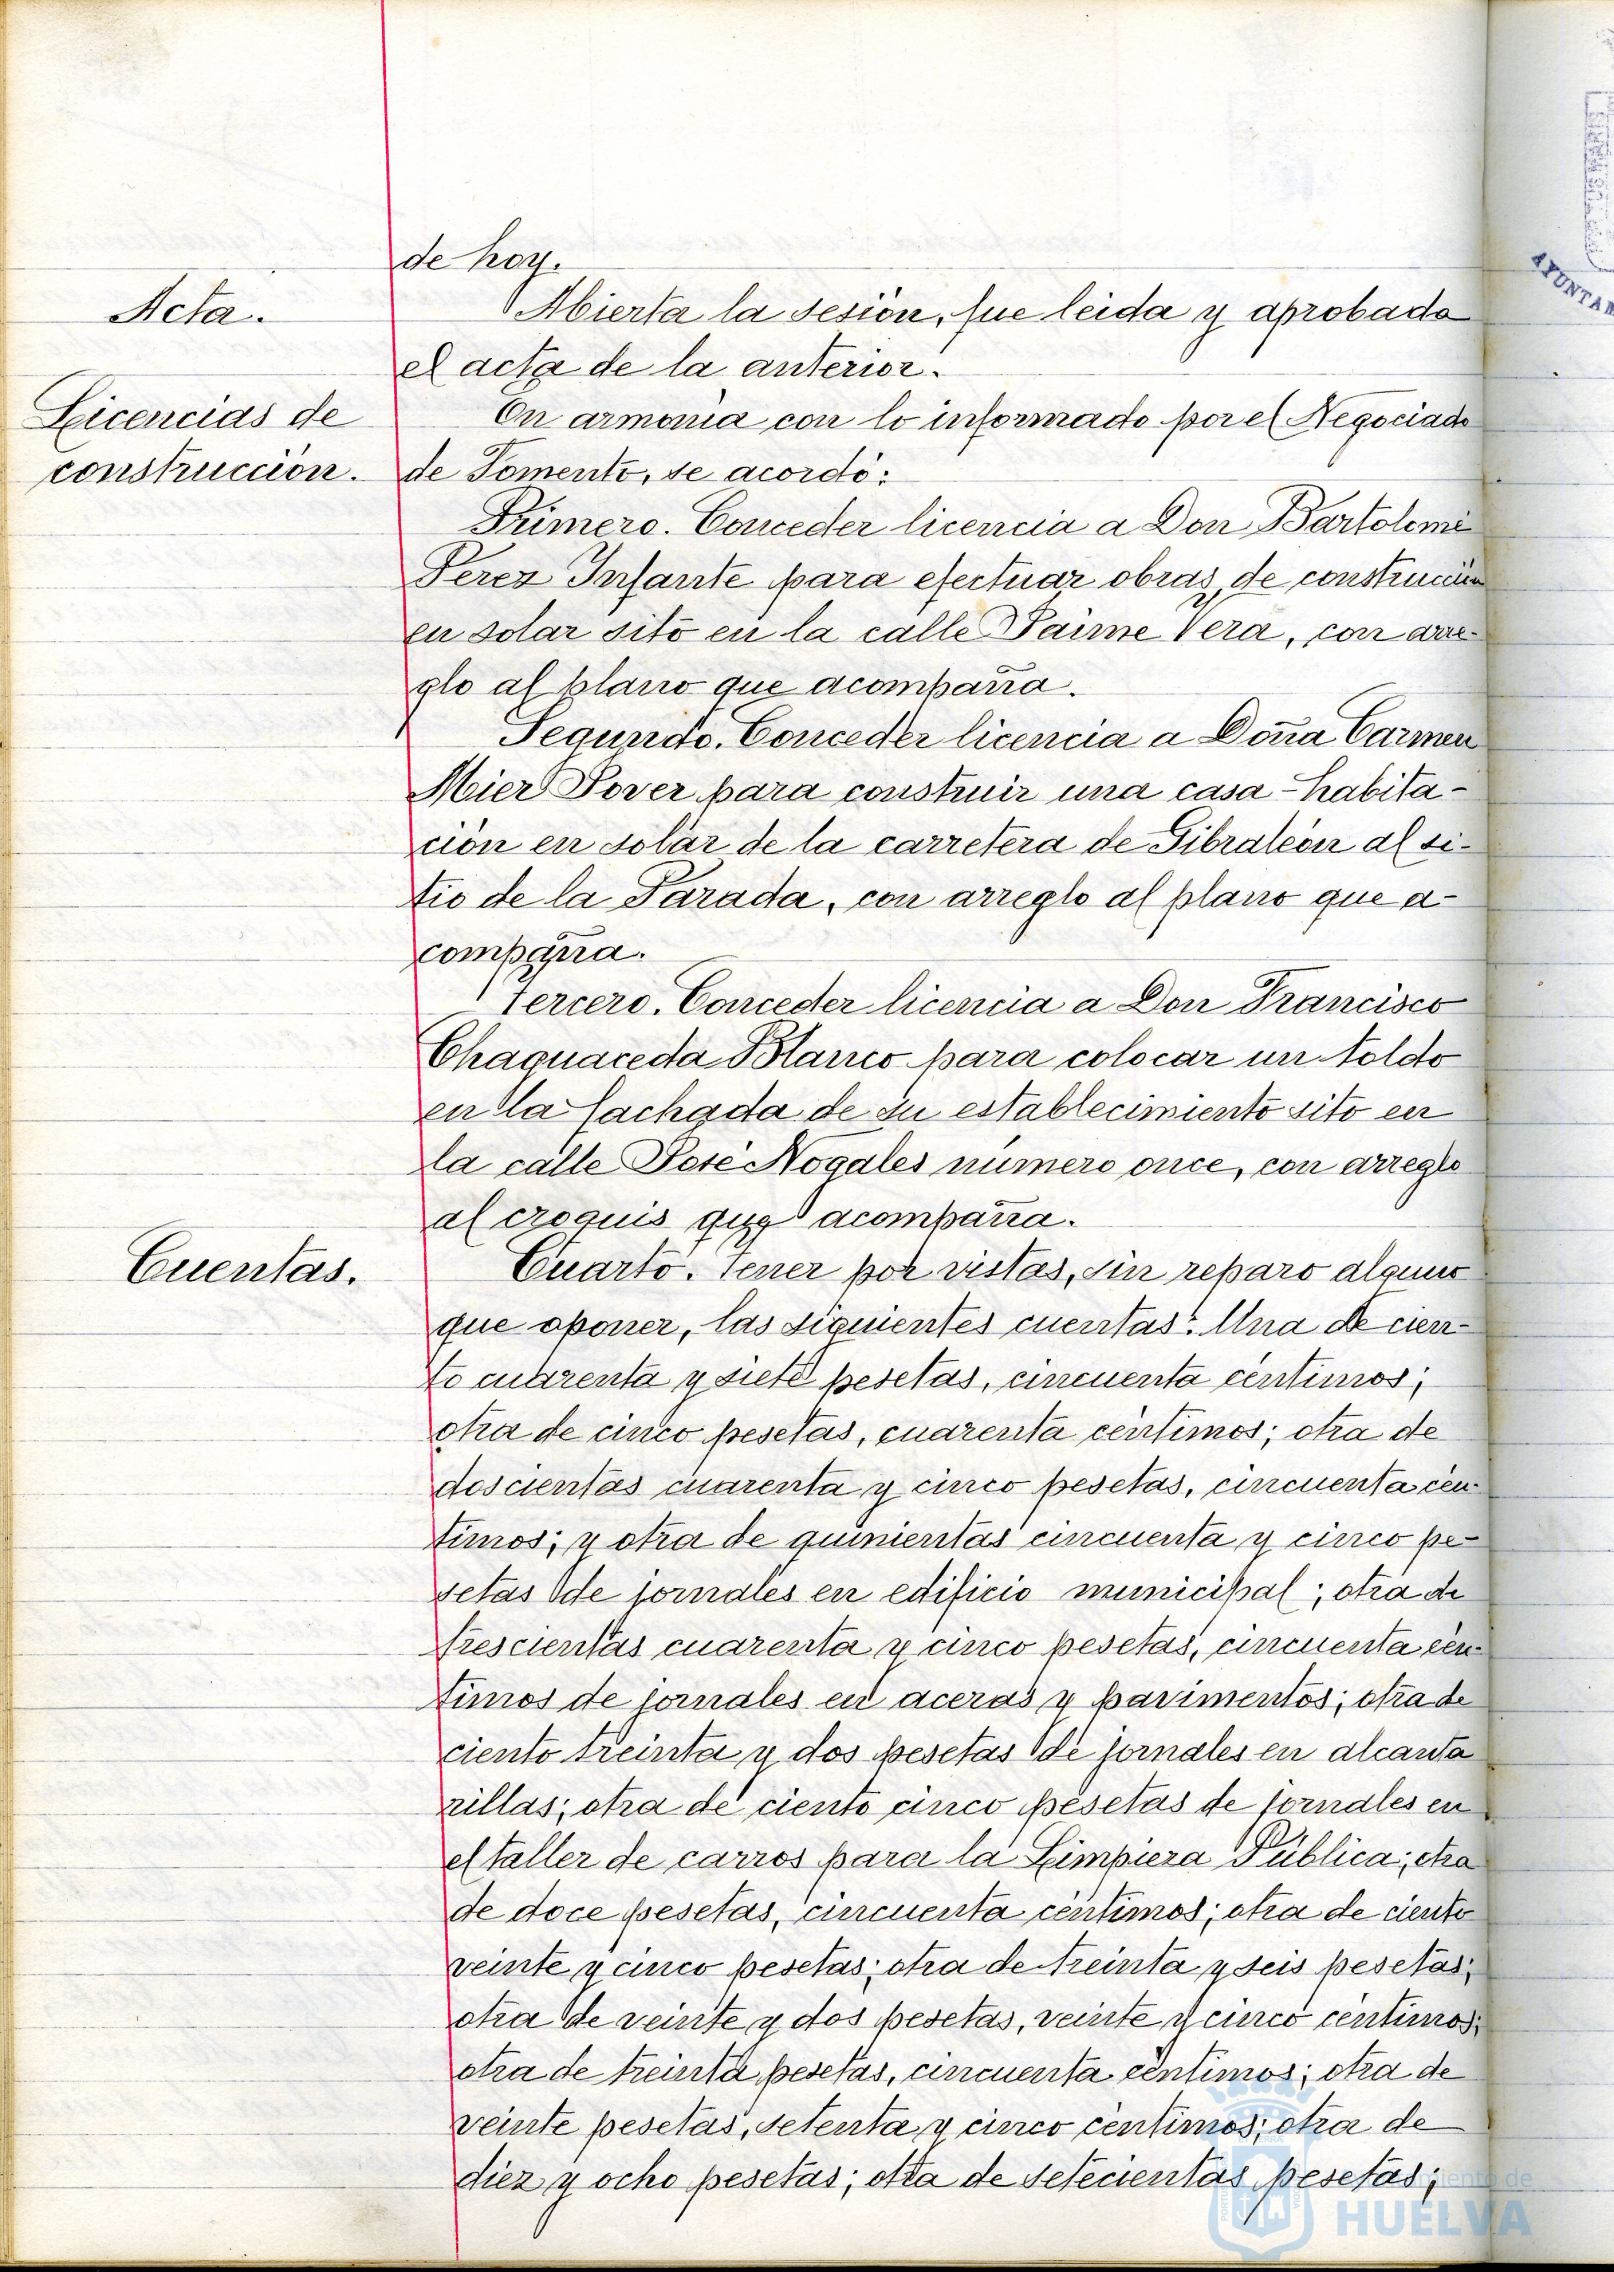 de hoy.
Acta.
Abierta la sesión, fue leida y aprobada
el acta de la anterior.
Licencias de
construcción.
En armonia con lo informado por el Negociado
de Fomento, se acordó:
Primero. Conceder licencia a Don Bartolomé
Perez Infante para efectuar obras de construcción
en solar sito en la calle Jaime Vera, con arre-
glo al plano que acompaña.
Segundo. Conceder licencia a Doña Carmen
Mier Jover para construir una casa-habita-
ción en solar de la carretera de Gibraleón al si-
tio de la Parada, con arreglo al plano que a-
compaña.
Tercero. Conceder licencia a Don Francisco
Chaguaceda Blanco para colocar un toldo
en la fachada de su establecimiento sito en
la calle José Nogales número once, con arreglo
al croquis que acompaña.
Cuentas.
Cuarto. Tener por vistas, sin reparo alguno
que oponer, las siguientes cuentas: Una de cien-
to cuarenta y siete pesetas, cincuenta céntimos;
otra de cinco pesetas, cuarenta céntimos; otra de
doscientas cuarenta y cinco pesetas, cincuenta cén-
timos; y otra de quinientas cincuenta y cinco pe-
setas de jornales en edificio municipal; otra de
trescientas cuarenta y cinco pesetas, cincuenta cén-
timos de jornales en aceras y pavimentos; otra de
ciento treinta y dos pesetas de jornales en alcanta
rillas; otra de ciento cinco pesetas de jornales en
el taller de carros para la Limpieza Pública; otra
de doce pesetas, cincuenta céntimos; otra de ciento
veinte y cinco pesetas; otra de treinta y seis pesetas;
otra de veinte y dos pesetas, veinte y cinco céntimos;
otra de treinta pesetas, cincuenta céntimos; otra de
veinte pesetas, setenta y cinco céntimos; otra de
diez y ocho pesetas; otra de setecientas pesetas;
HUELVA